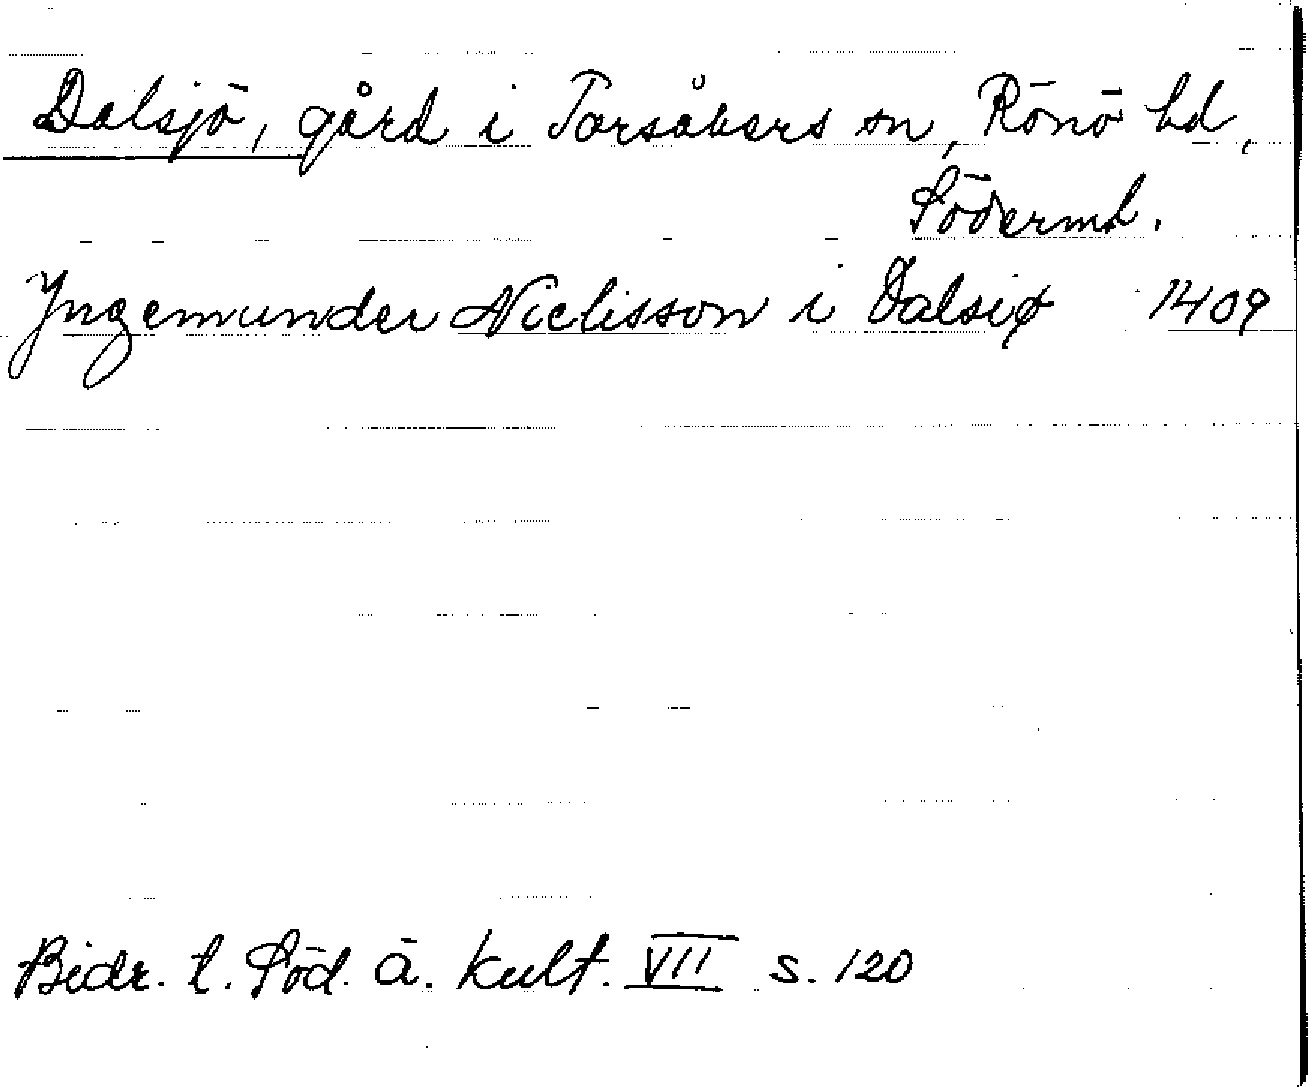 Dalsjö, gård i Torsåkers sn, Rönö hd,
Södermd.
Yngemunder Niclisson i Dalsiø 1409
Bidr. t. Söd. ä. kult. VII s. 120